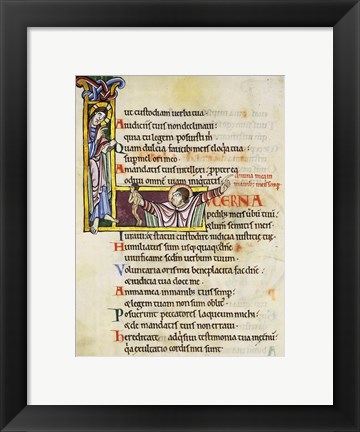 uc custodiam uerba tua
A iudiciis tuis non declinaui:
quia tu legem posuisti m
Q uam dulcia faucibus meis eloq̃a tua:
sup mel ori meo
A mandatis tuis intellexi: ppterea
odiui omnẽ uiam iniquitatis
LUCERNA
pedibus meis uerbũ tuũ:
& lumen semitis meis
I uraui & statui custodire iudicia iustitiẽ tuẽ
H umiliatus sum usq̃quaq̃:
uiuifica me secdm uerbum tuum
V oluntaria oris mei beneplacita fac dñe:
& iudicia tua doce me
A nima mea in manibus tuis semp:
& legem tuam non sum oblit'
P osuerunt peccatores laqueum michi:
& de mandatis tuis non erraui
H ereditate adqsiui testimonia tua in et̃nũ:
q̃a exultatio cordis mei sunt